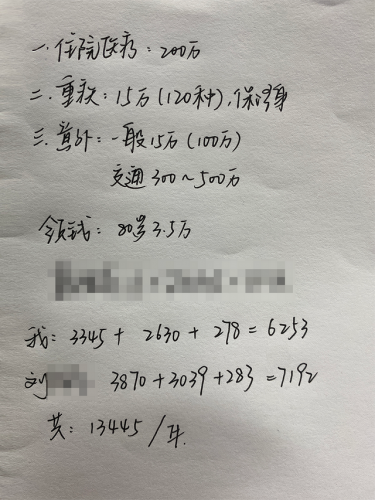 一.住院医疗：200万
二.重疾：15万(120种),保终身
三.意外：一般15万(100万)
交通300～500万
领钱：80岁3.5万
我：3345+2630+278=6253
刘 3870+3039+283=7192
共：13445/年.